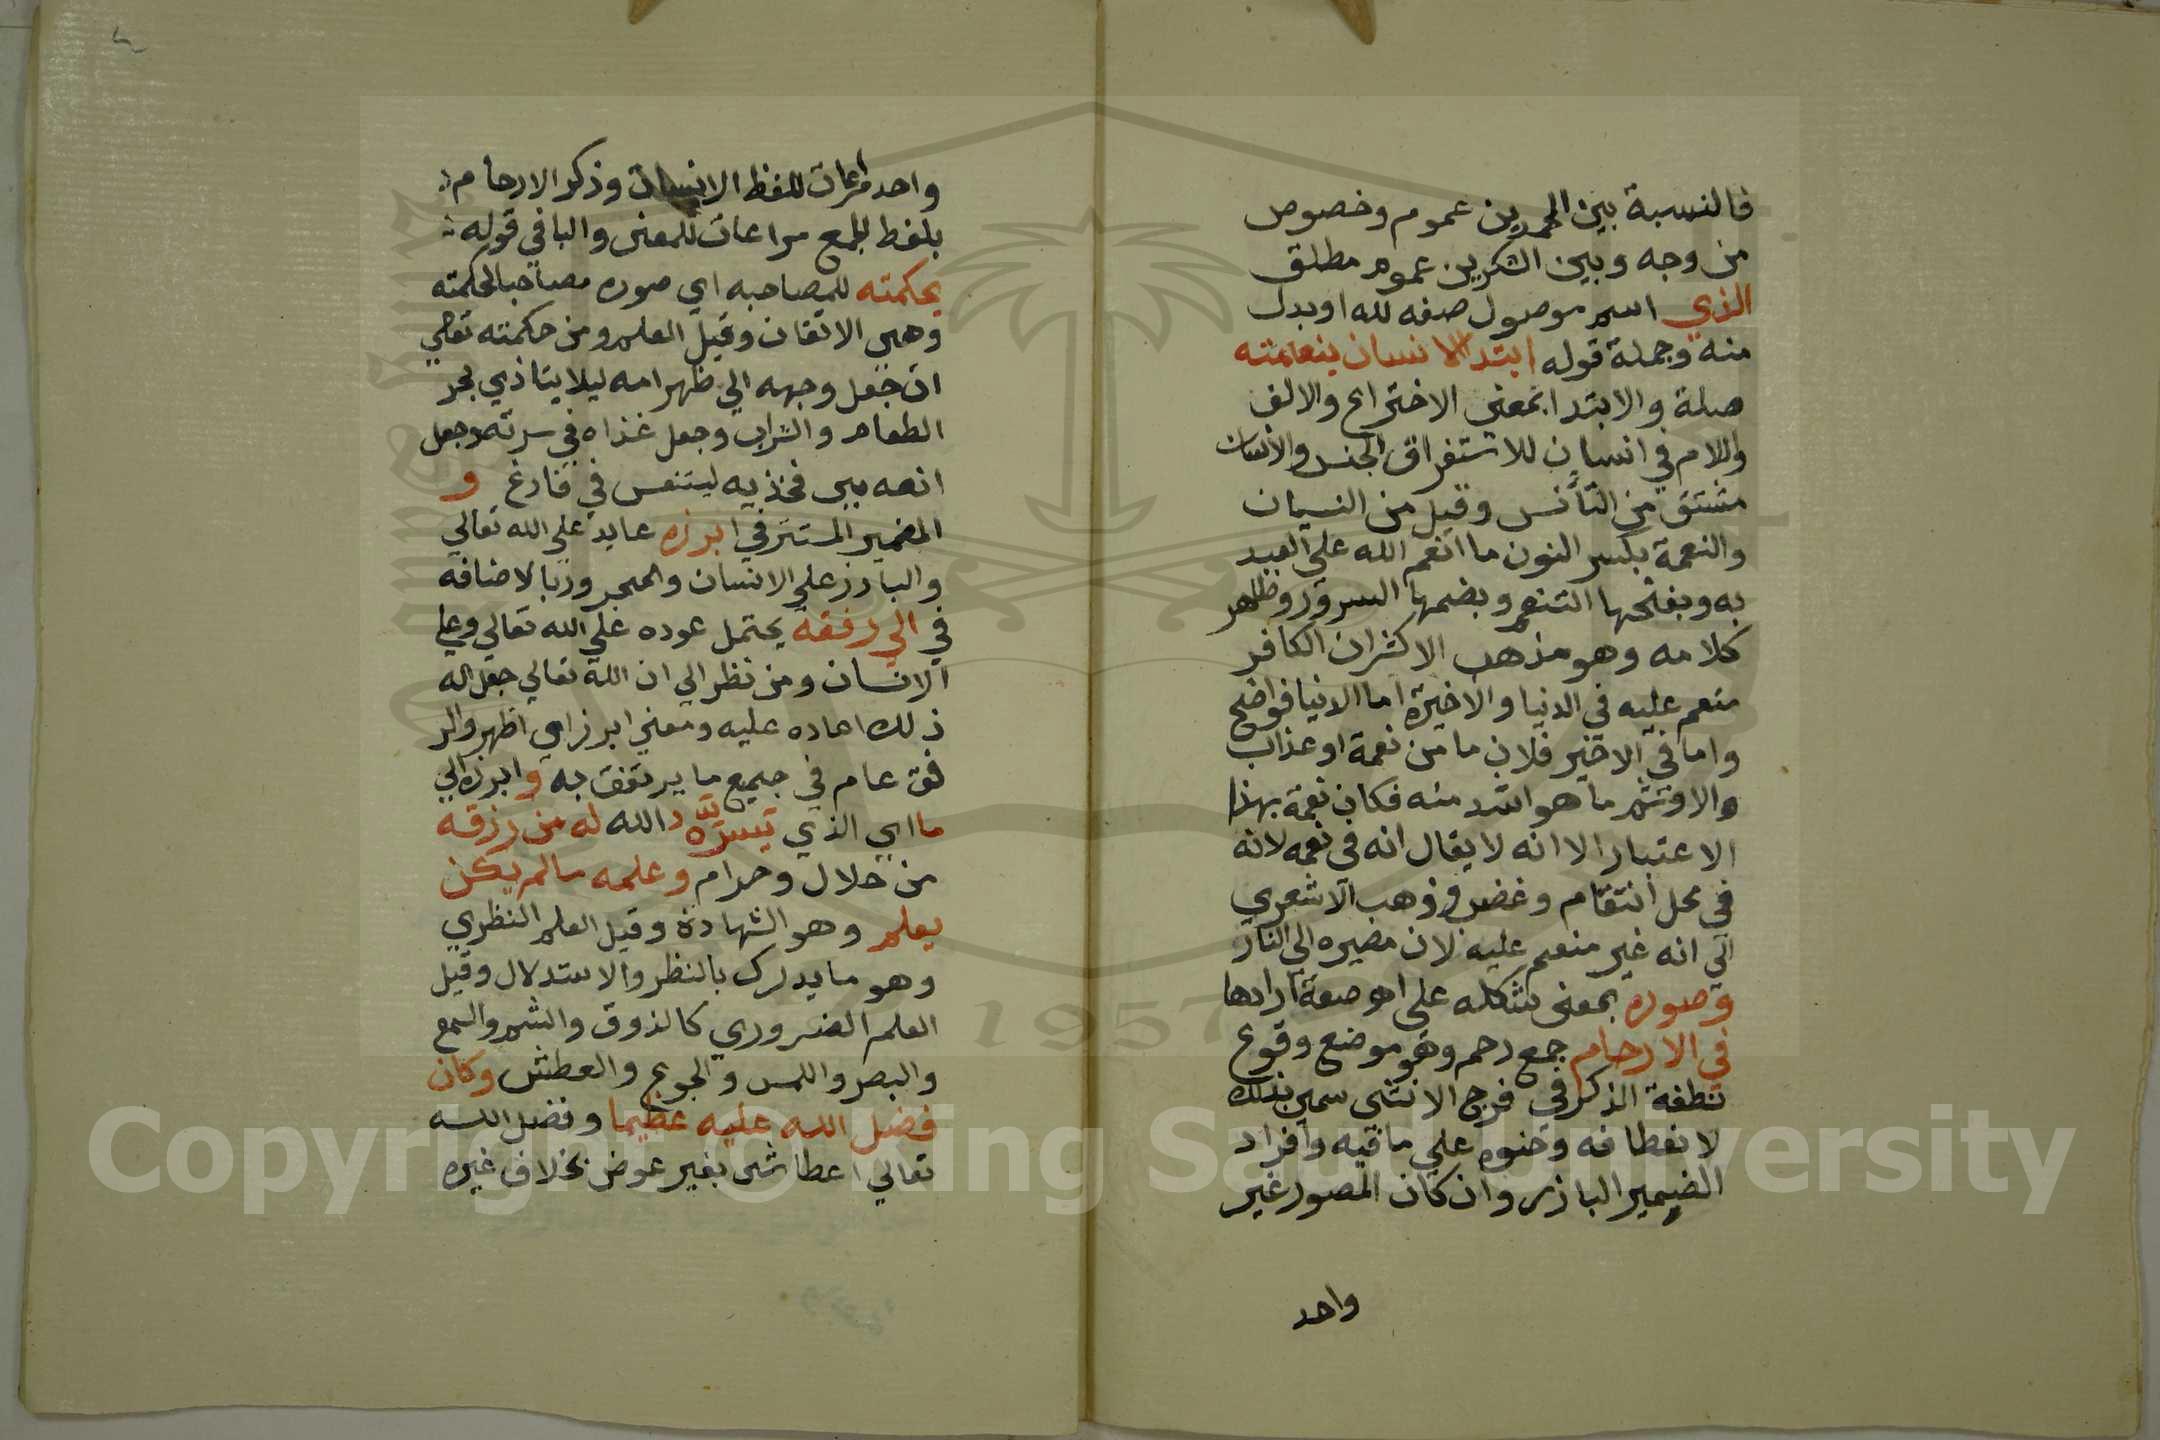 فالنسبة بين الحمدين عموم وخصوص
من وجه وبين الشكرين عموم مطلق
الذي اسم موصول صفه لله او بدل
منه وجملة قوله ابتدا الانسان بنعمته
صلة والابتدا بمعنى الاختراع والالف
واللام في انسان للاستغراق الجنس والانسان
مشتق من التأنس وقيل من النسيان
والنعمة بكسر النون ما انعم الله علي العبد
به وبفتحها التنعم وبضمها السرور وظاهر
كلامه وهو مذهب الاكثر ان الكافر
منعم عليه في الدنيا والاخيرة اما الدنيا فواضح
واما في الاخير فلان ما من نعمة او عذاب
والا وثم ما هو اشد منه فكان نعمة بهذا
الاعتبار الا انه لا يقال انه في نعمه لانه
في محل انتقام وغضب وذهب الاشعري
الي انه غير منعم عليه لان مصيره الي النار
وصوره بمعنى شكله على اي صفة ارادها
في الارحام جمع رحم وهو موضع وقوع
نطفة الذكر في فرج الانثى سمي بذلك
لانعطافه وحنوه علي ما فيه وافراد
الضمير البارز وان كان المصور غير
واحد
واحد مراعات للفظ الانسان وذكر الارحام
بلفظ الجمع مراعات للمعنى والبا في قوله
بحكمته للمصاحبه اي صوره مصاحبا لحكمته
وهى الاتقان وقيل العلم ومن حكمته تعالي
ان جعل وجهه الي ظهر امه ليلا يتاذي بحر
الطعام والشراب وجعل غذاه في سرته وجعل
انفه بين فخذيه ليتنفس في فارغ و
المضمير المستتر في ابرزه عايد علي الله تعالي
والبارز علي الانسان والمجرور بالاضافه
في الي رفقه يحتمل عوده علي الله تعالي وعلي
الانسان ومن نظر الي ان الله تعالي جعل له
ذلك اعاده عليه ومعني ابرز اي اظهر والر
فق عام في جميع ما يرتفق به وابرزه الي
ما اي الذي يسره الله له من رزقه
من حلال وحرام وعلمه ما لم يكن
يعلم وهو الشهادة وقيل العلم النظري
وهو ما يدرك بالنظر والاستدلال وقيل
العلم الضروري كالذوق والشم والسمع
والبصر واللمس والجوع والعطش وكان
فضل الله عليه عظيما وفضل الله
تعالي اعطا شي بغير عوض بخلاف غيره
Copyright © King Saud University
1957